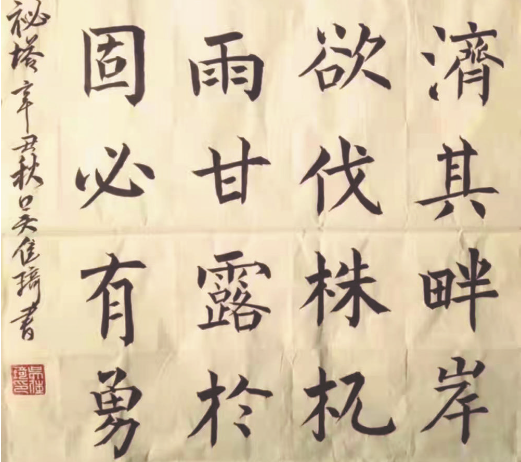 濟其畔岸
欲伐株杌
雨甘露於
固必有勇
祕塔辛丑秋吳佳琦書